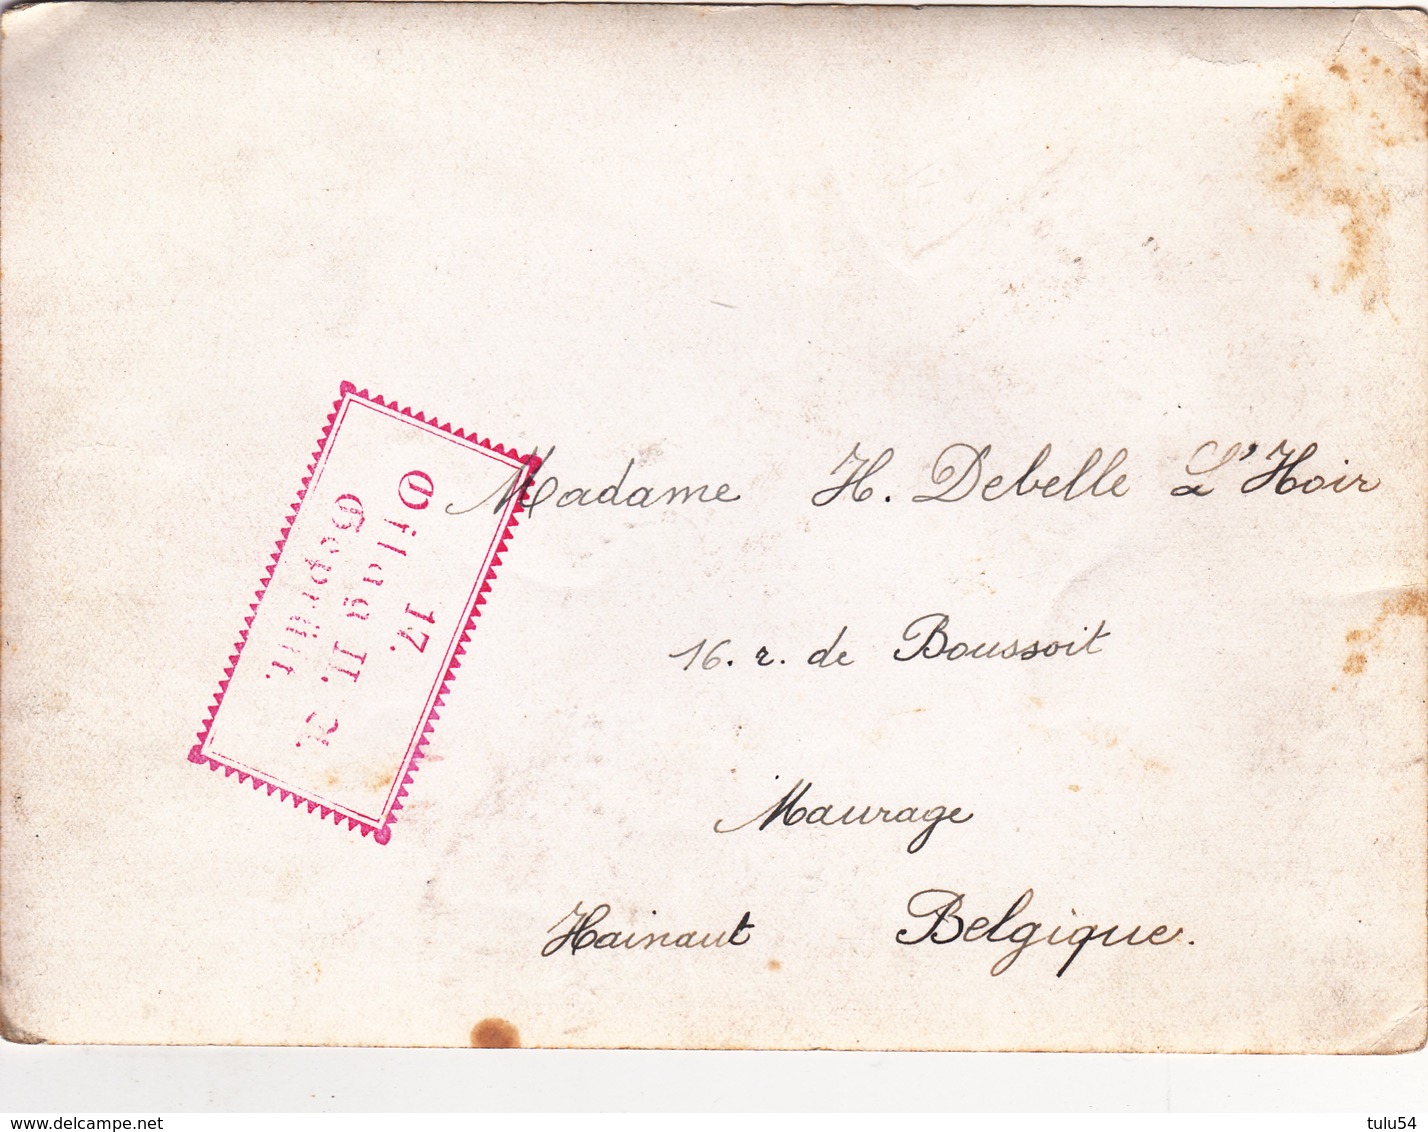 Madame H. Debelle L'Hoir
16. r. de Boussoit
Maurage
Hainaut Belgique.
17.
Oflag II. A.
Geprüft.
delcampe.net
tulu54